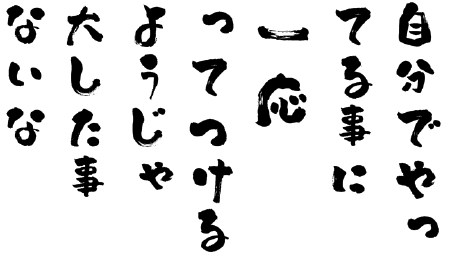 自分でやっ
てる事に
一応
ってつける
ようじゃ
大した事
ないな